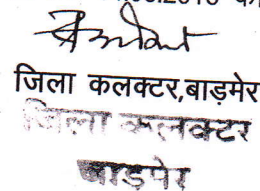 जिला कलक्टर,बाड़मेर
जिला कलक्टर
बाड़मेर